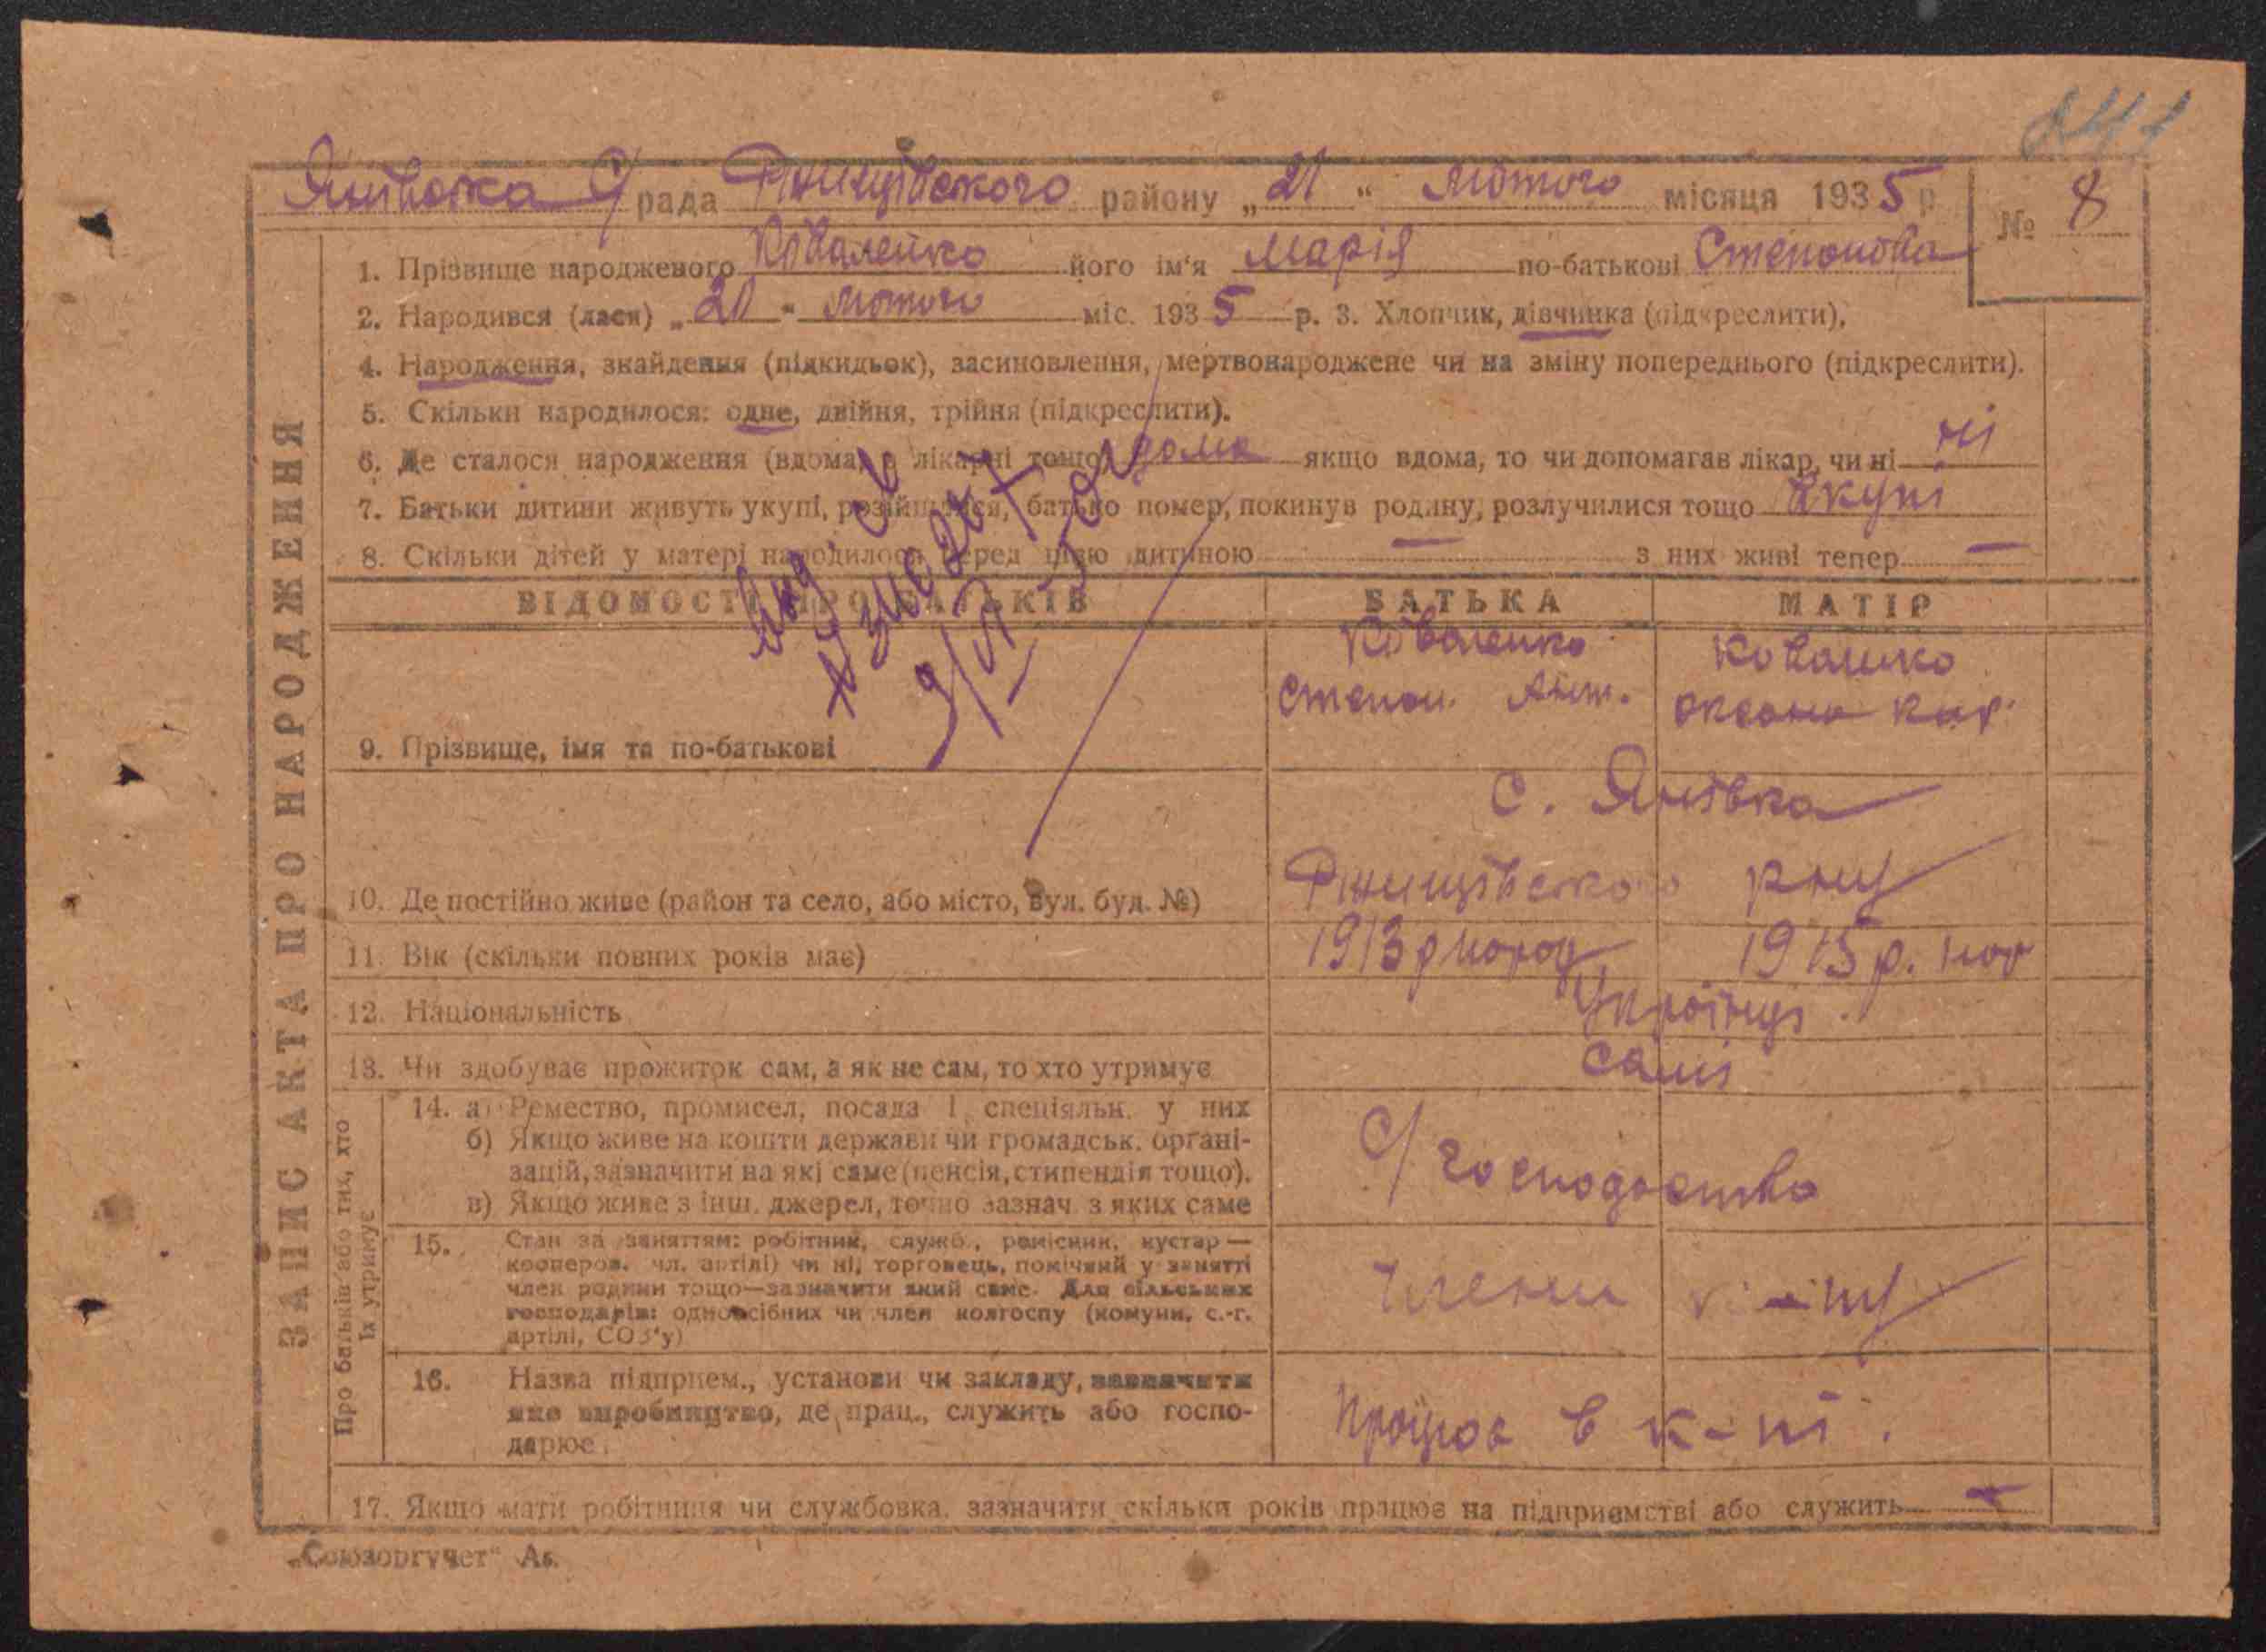 247
Янівська С/рада Ржищівського району „21“ лютого місяця 1935 р.
№ 8
ЗАПИС АКТА ПРО НАРОДЖЕННЯ
1. Прізвище народженого Коваленко його ім'я Марія по-батькові Степонова
2. Народився (лася) „20“ лютого міс. 1935 р. 3. Хлопчик, дівчинка (підкреслити),
4. Народження, знайдення (підкидьок), засиновлення, мертвонароджене чи на зміну попереднього (підкреслити).
5. Скільки народилося: одне, двійня, трійня (підкреслити).
6. Де сталося народження (вдома, в лікарні тощо) дома якщо вдома, то чи допомагав лікар, чи ні ні
7. Батьки дитини живуть укупі, розійшлися, батько помер, покинув родину, розлучилися тощо вкупі
8. Скільки дітей у матері народилося перед цією дитиною — з них живі тепер —
ВІДОМОСТІ ПРО БАТЬКІВ БАТЬКА МАТІР
9. Прізвище, імя та по-батькові
Коваленко
Степон.
Коваленко
Оксана
10. Де постійно живе (район та село, або місто, вул. буд. №)
с. Янівка
Ржищівського р-ну
11. Вік (скільки повних років має) 1913 р народ 1915 р. нар
12. Національність Українці
13. Чи здобуває прожиток сам, а як не сам, то хто утримує самі
Про батьків або тих, хто їх утримує
14. а) Ремество, промисел, посада і спеціяльн. у них
б) Якщо живе на кошти держави чи громадськ. органі-
зацій, зазначити на які саме (пенсія, стипендія тощо).
в) Якщо живе з інш. джерел, точно зазнач. з яких саме
С/господарство
15. Стан за заняттям: робітник, служб., ремісник, кустар —
кооперов. чл. артілі) чи ні, торговець, помічний у занятті
член родини тощо—зазначити який саме. Для сільських
господарів: одноосібних чи член колгоспу (комуни, с.-г.
артілі, СОЗ'у)
Члени
16. Назва підприєм., установи чи закладу, зазначити
яке виробництво, де прац., служить або госпо-
дарює.
Працює в к-пі.
17. Якщо мати робітниця чи службовка, зазначити скільки років працює на підприємстві або служить —
„Союзоргучет“